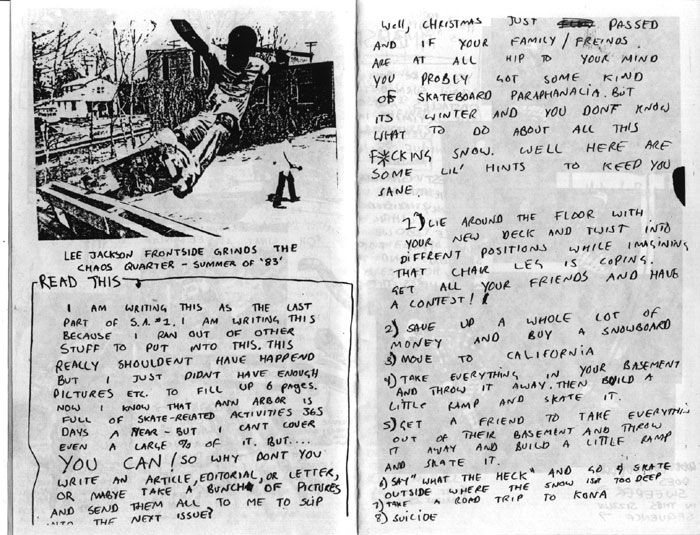 LEE JACKSON FRONTSIDE GRINDS THE
CHAOS QUARTER - SUMMER OF '83'
READ THIS
I AM WRITING THIS AS THE LAST
PART OF S.A. #1. I AM WRITING THIS
BECAUSE I RAN OUT OF OTHER
STUFF TO PUT INTO THIS. THIS
REALLY SHOULDENT HAVE HAPPEND
BUT I JUST DIDNT HAVE ENOUGH
PICTURES ETC. TO FILL UP 6 PAGES.
NOW I KNOW THAT ANN ARBOR IS
FULL OF SKATE-RELATED ACTIVITIES 365
DAYS A YEAR - BUT I CANT COVER
EVEN A LARGE % OF IT. BUT....
YOU CAN! SO WHY DONT YOU
WRITE AN ARTICLE, EDITORIAL, OR LETTER,
OR MABYE TAKE A BUNCH OF PICTURES
AND SEND THEM ALL TO ME TO SLIP
INTO THE NEXT ISSUE?
WELL, CHRISTMAS JUST PASSED
AND IF YOUR FAMILY/FREINDS
ARE AT ALL HIP TO YOUR MIND
YOU PROBLY GOT SOME KIND
OF SKATEBOARD PARAPHANALIA. BUT
ITS WINTER AND YOU DONT KNOW
WHAT TO DO ABOUT ALL THIS
F*CKING SNOW. WELL HERE ARE
SOME LIL' HINTS TO KEEP YOU
SANE.
1) LIE AROUND THE FLOOR WITH
YOUR NEW DECK AND TWIST INTO
DIFFRENT POSITIONS WHILE IMAGINING
THAT CHAIR LEG IS COPING.
GET ALL YOUR FRIENDS AND HAVE
A CONTEST!
2) SAVE UP A WHOLE LOT OF
MONEY AND BUY A SNOWBOARD
3) MOVE TO CALIFORNIA
4) TAKE EVERYTHING IN YOUR BASEMENT
AND THROW IT AWAY. THEN BUILD A
LITTLE RAMP AND SKATE IT.
5) GET A FRIEND TO TAKE EVERYTHIN
OUT OF THEIR BASEMENT AND THROW
IT AWAY AND BUILD A LITTLE RAMP
AND SKATE IT.
6) SAY "WHAT THE HECK" AND GO SKATE
OUTSIDE WHERE THE SNOW ISN'T TOO DEEP
7) TAKE A ROAD TRIP TO KONA
8) SUICIDE